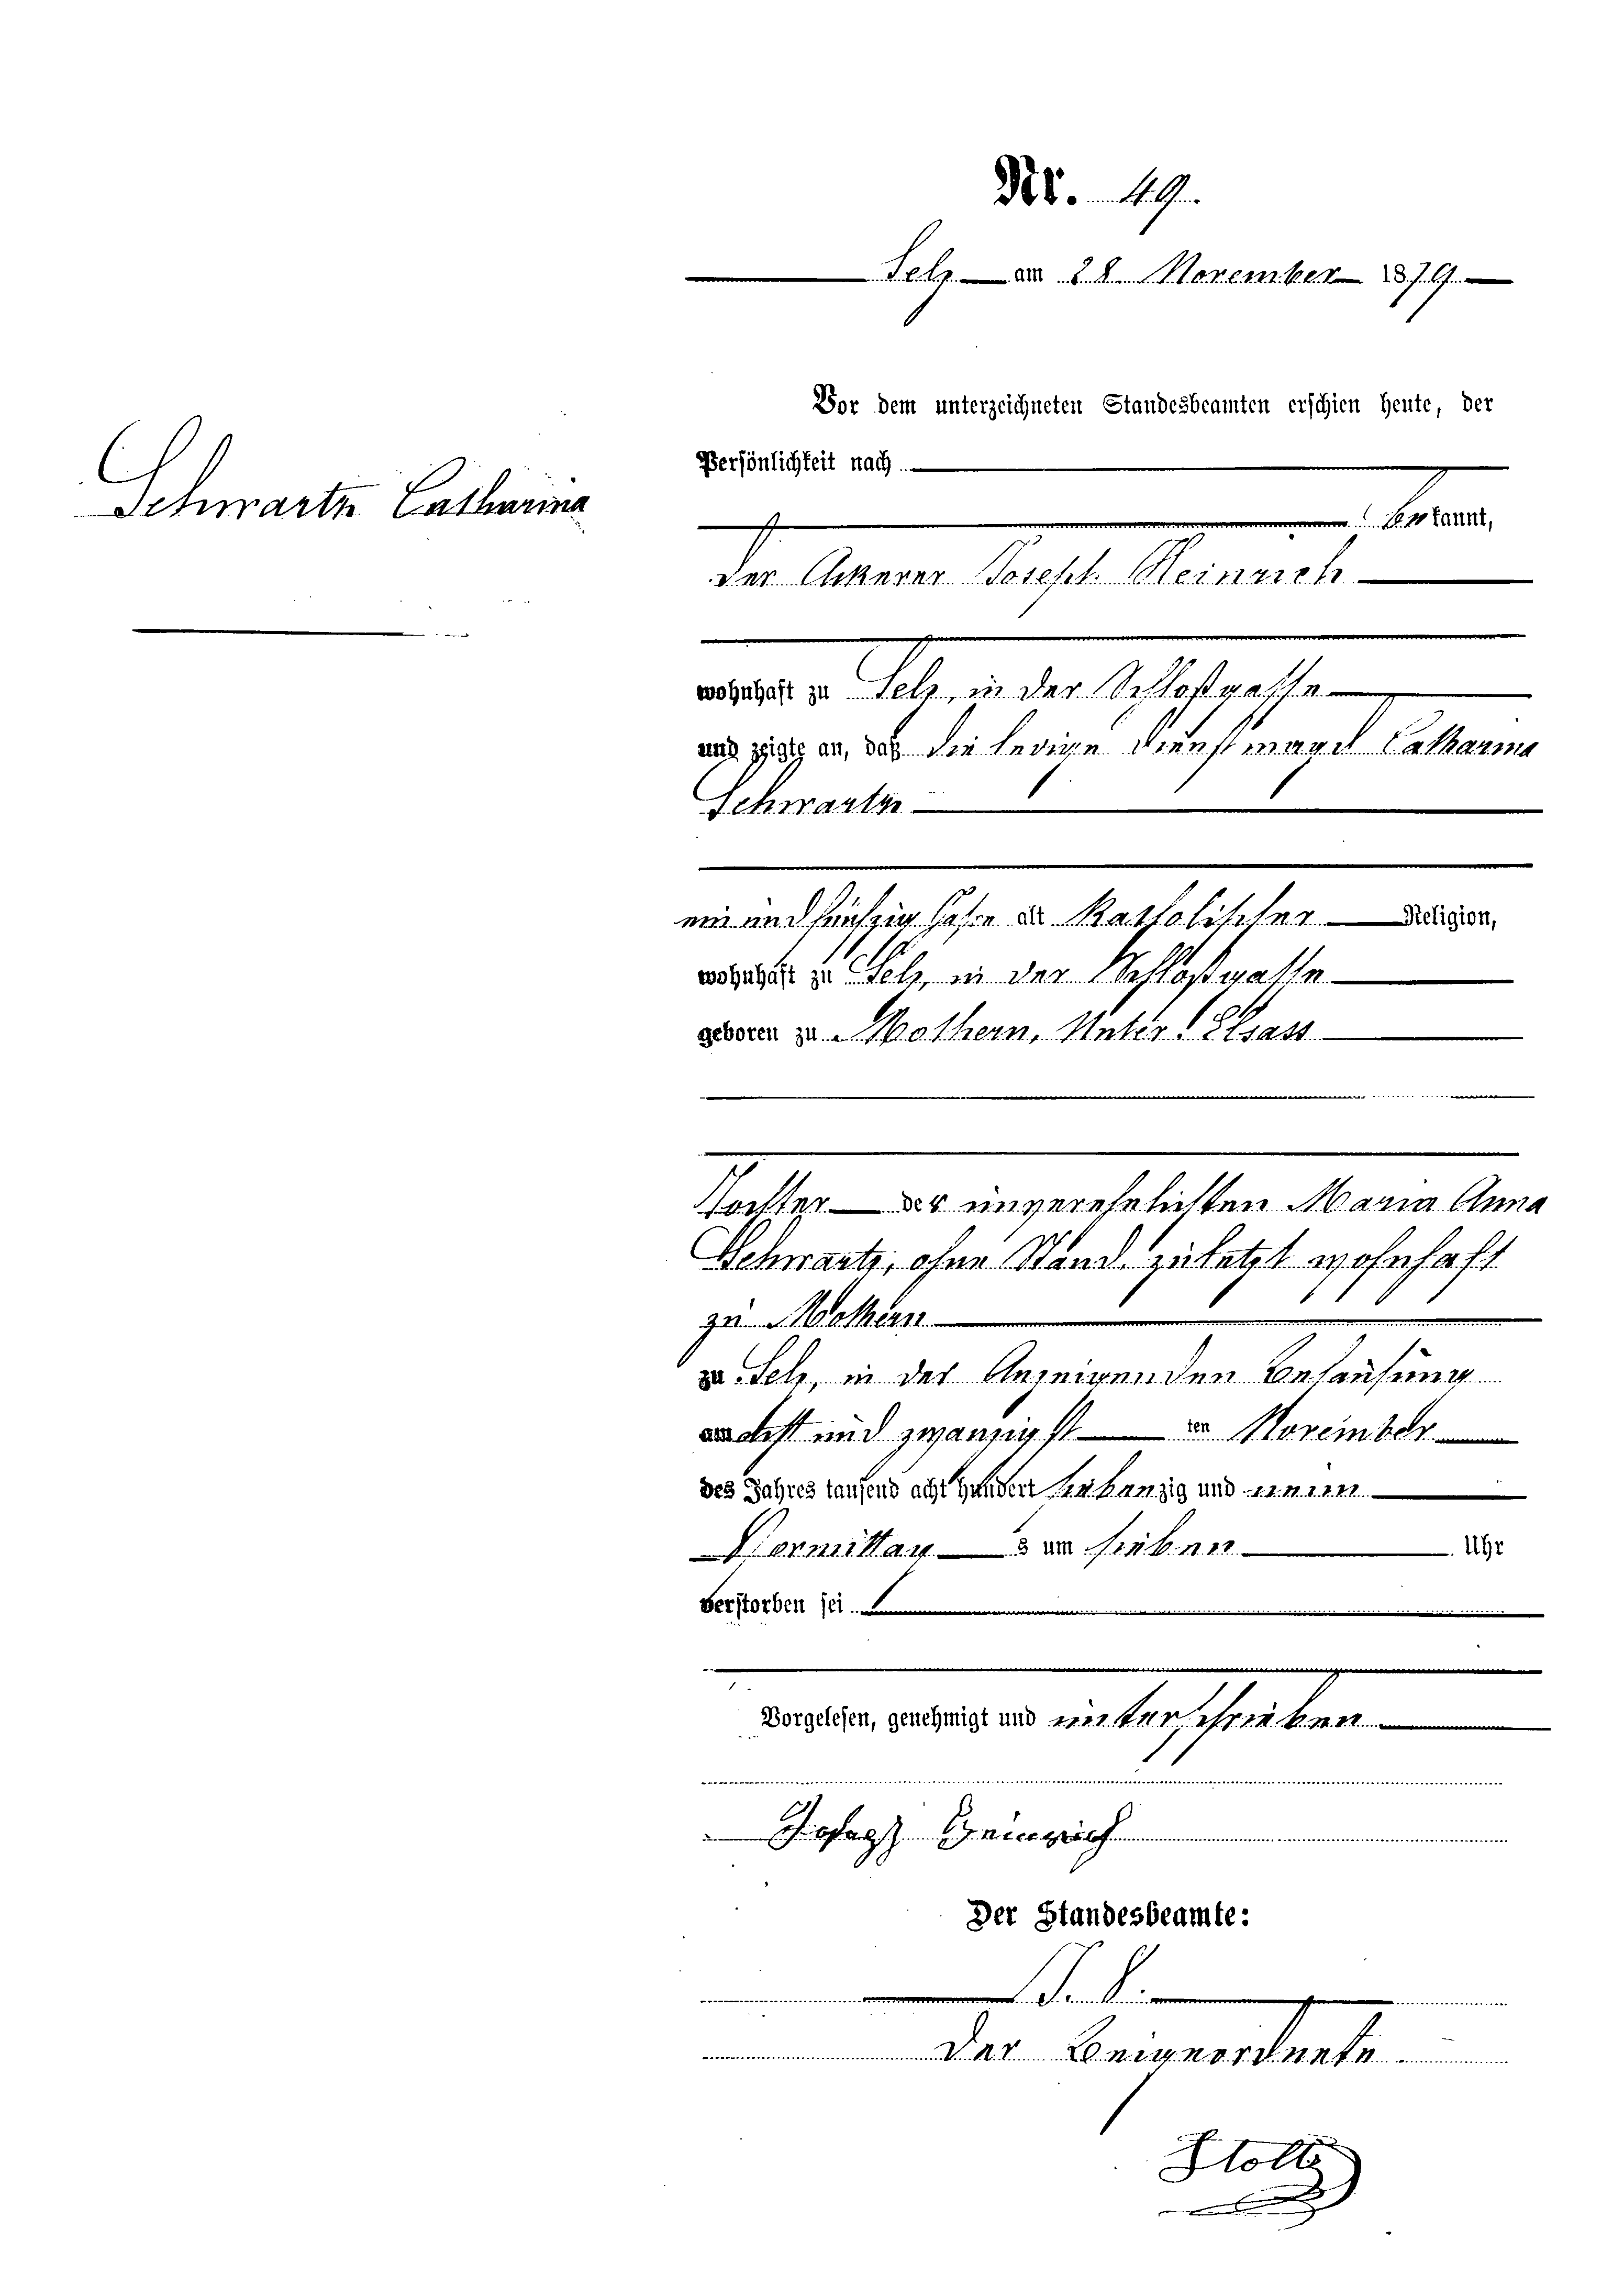 Nr. 49.
Selz am 28. November 1879
Vor dem unterzeichneten Standesbeamten erschien heute, der
Persönlichkeit nach
Schwartz Catharina
be kannt,
der Ackerer Joseph Heinrich
wohnhaft zu Selz, in der Schloßgasse
und zeigte an, daß die ledige Dienstmagd Catharina
Schwartz
ein und fünfzig Jahre alt katholischer Religion,
wohnhaft zu Selz, in der Schloßgasse
geboren zu Mothern, Unter-Elsass
Tochter der unverehelichten Maria Anna
Schwartz, ohne Stand, zuletzt wohnhaft
zu Mothern
zu Selz, in des Anzeigenden Behausung
am acht und zwanzigst ten November
des Jahres tausend acht hundert siebenzig und neun
Vormittag s um sieben Uhr
verstorben sei
Vorgelesen, genehmigt und unterschrieben
Joseph Heinrich
Der Standesbeamte:
Der Beigeordnete
Stoltz